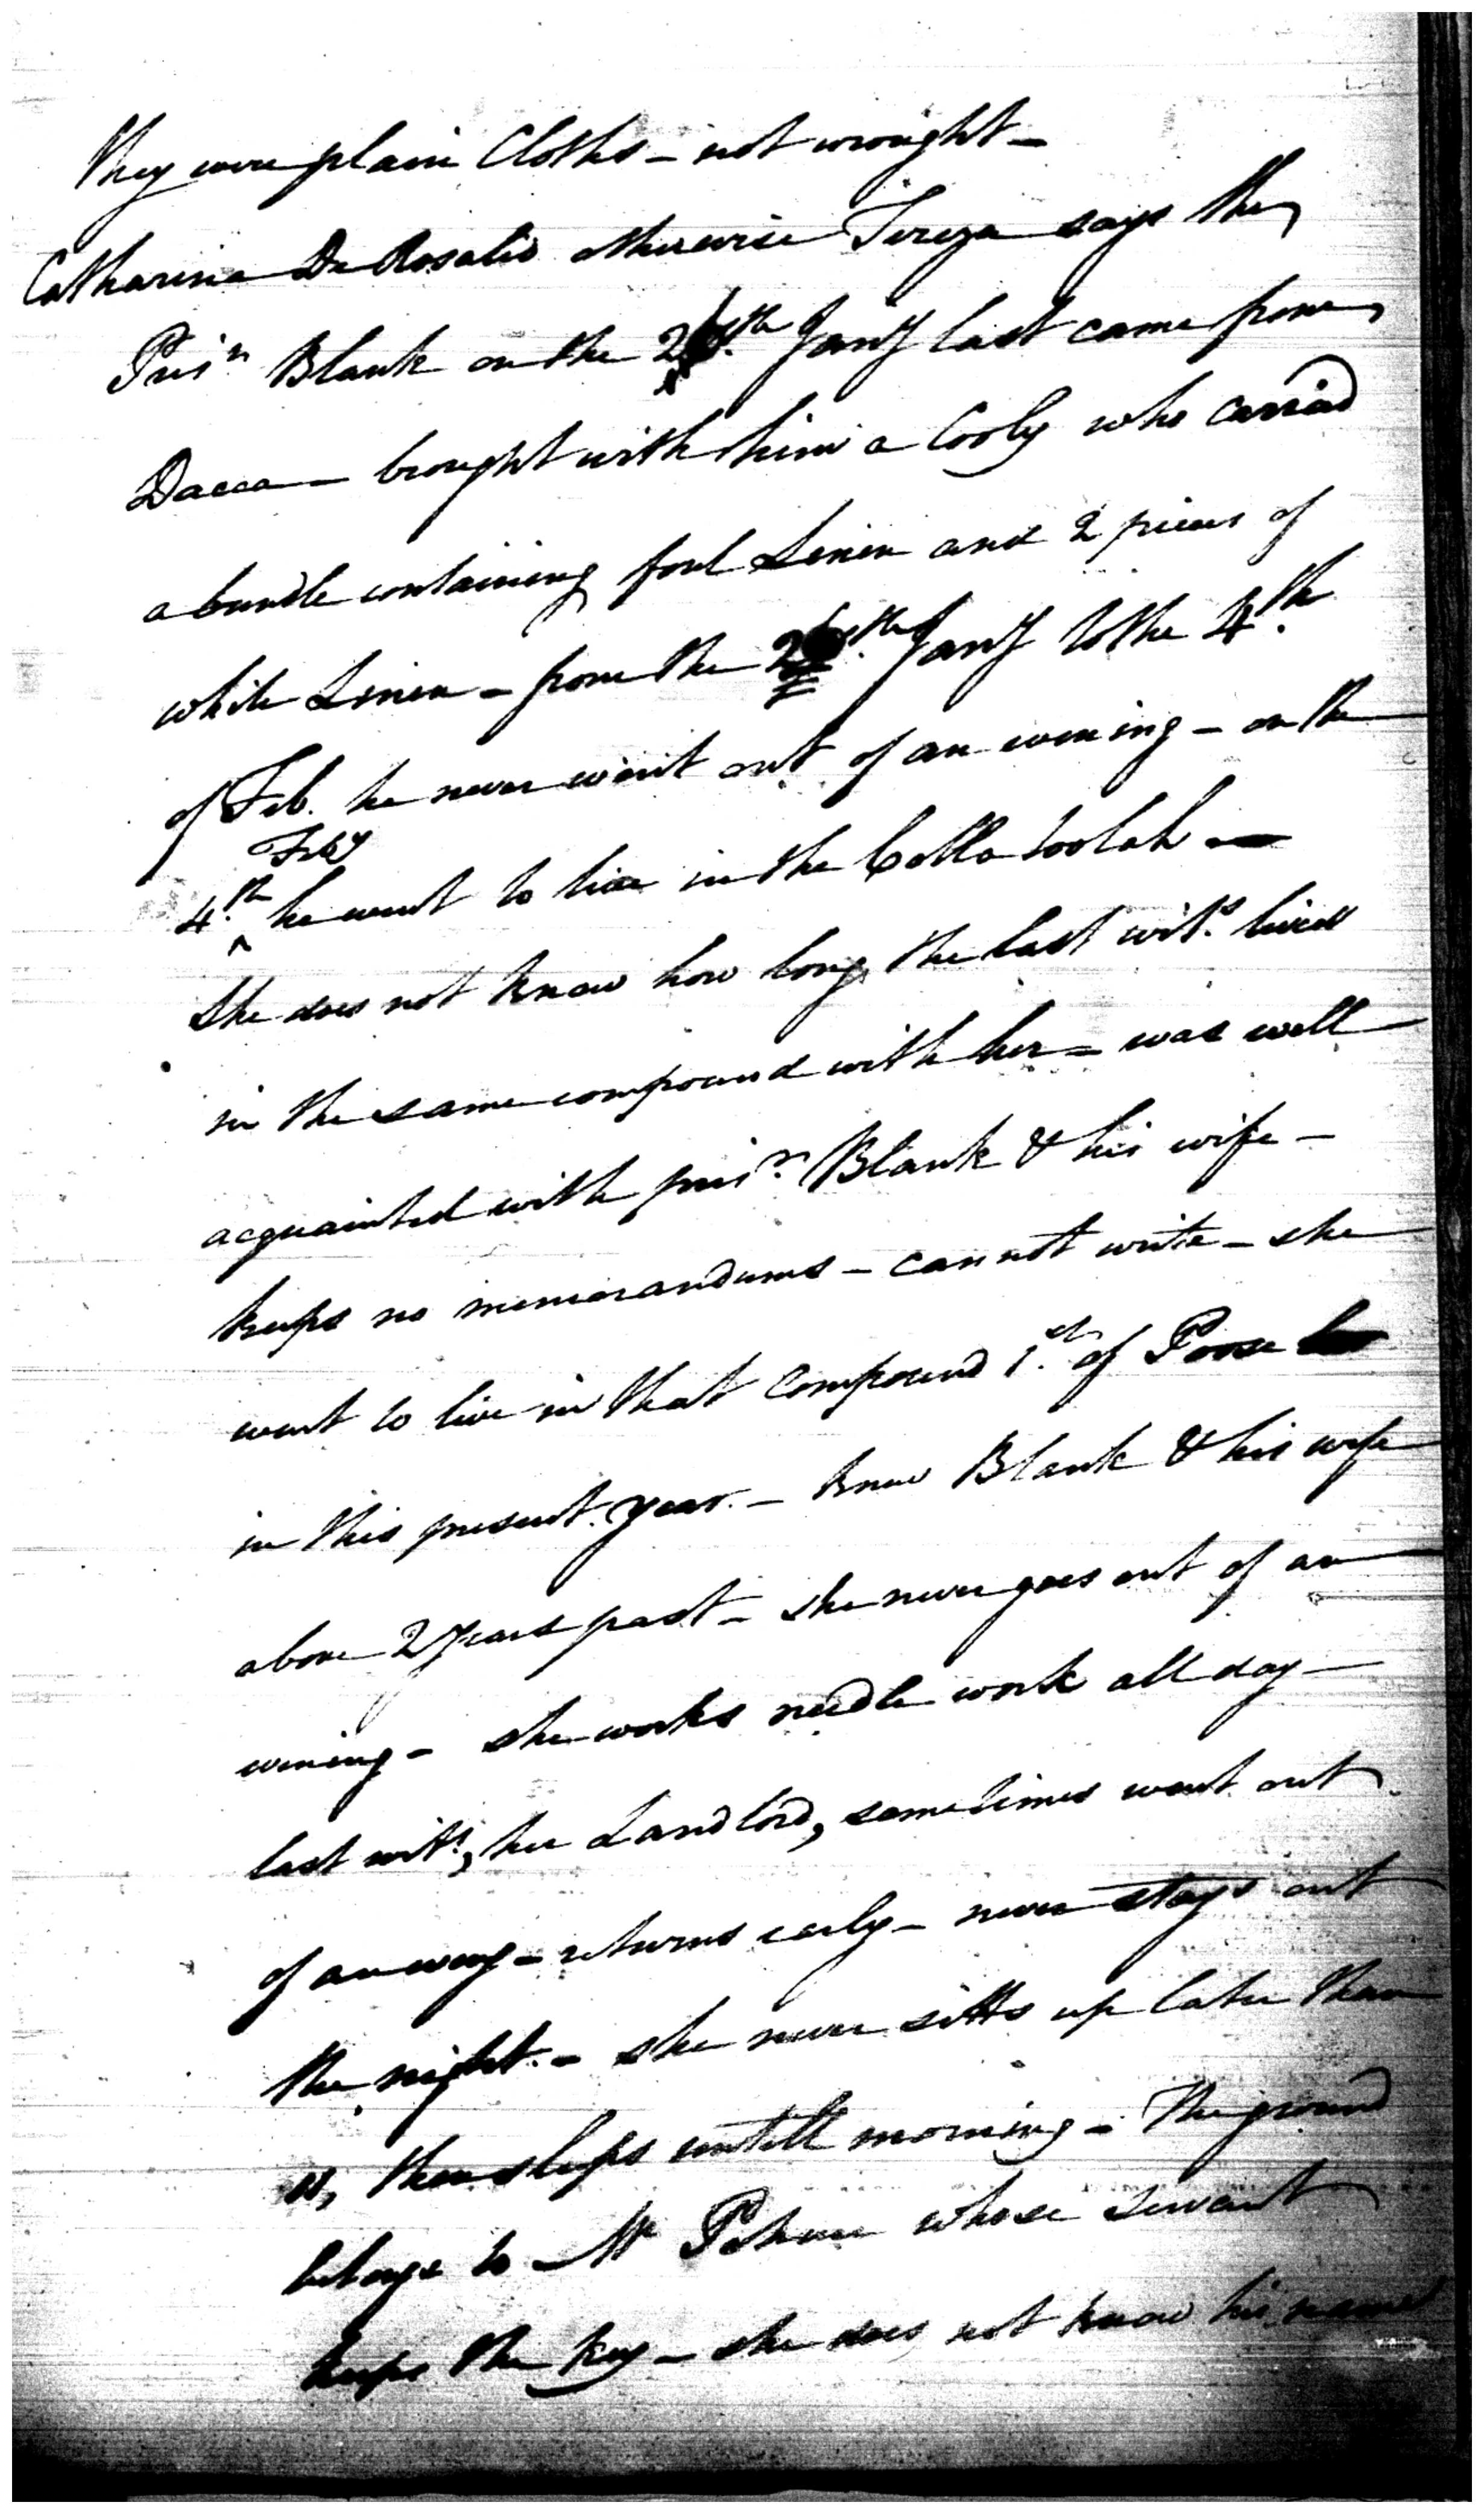 They were plain Cloths - not wrought -
Catharina De Rosalio otherwise Tereza says the
Prisr Blank on the 26th Jany last came from
Dacca - brought with him a Cooly who carried
a bundle containing foul Linen and 2 pieces of
white Linen - from the 26th Jany to the 4th
of Feb. he never went out of an evening - on the
Feby
4th he went to live in the Colla toolah -
She does not know how long the last wits. lived
in the same compound with her - was well
acquainted with prisr. Blank & his wife -
keeps no memorandums - cannot write - she
went to live in that compound 1st of Poose
in this present year. - knew Blank & his wife
above 2 years past - she never goes out of an
evening - she works needle work all day -
last wits, her Landlord, sometimes went out
of an eveng - returns early - never stays out
the night. - she never sitts up later than
then sleeps untill morning - The ground
belongs to Mr whose servant
keeps the key - she does not know his name